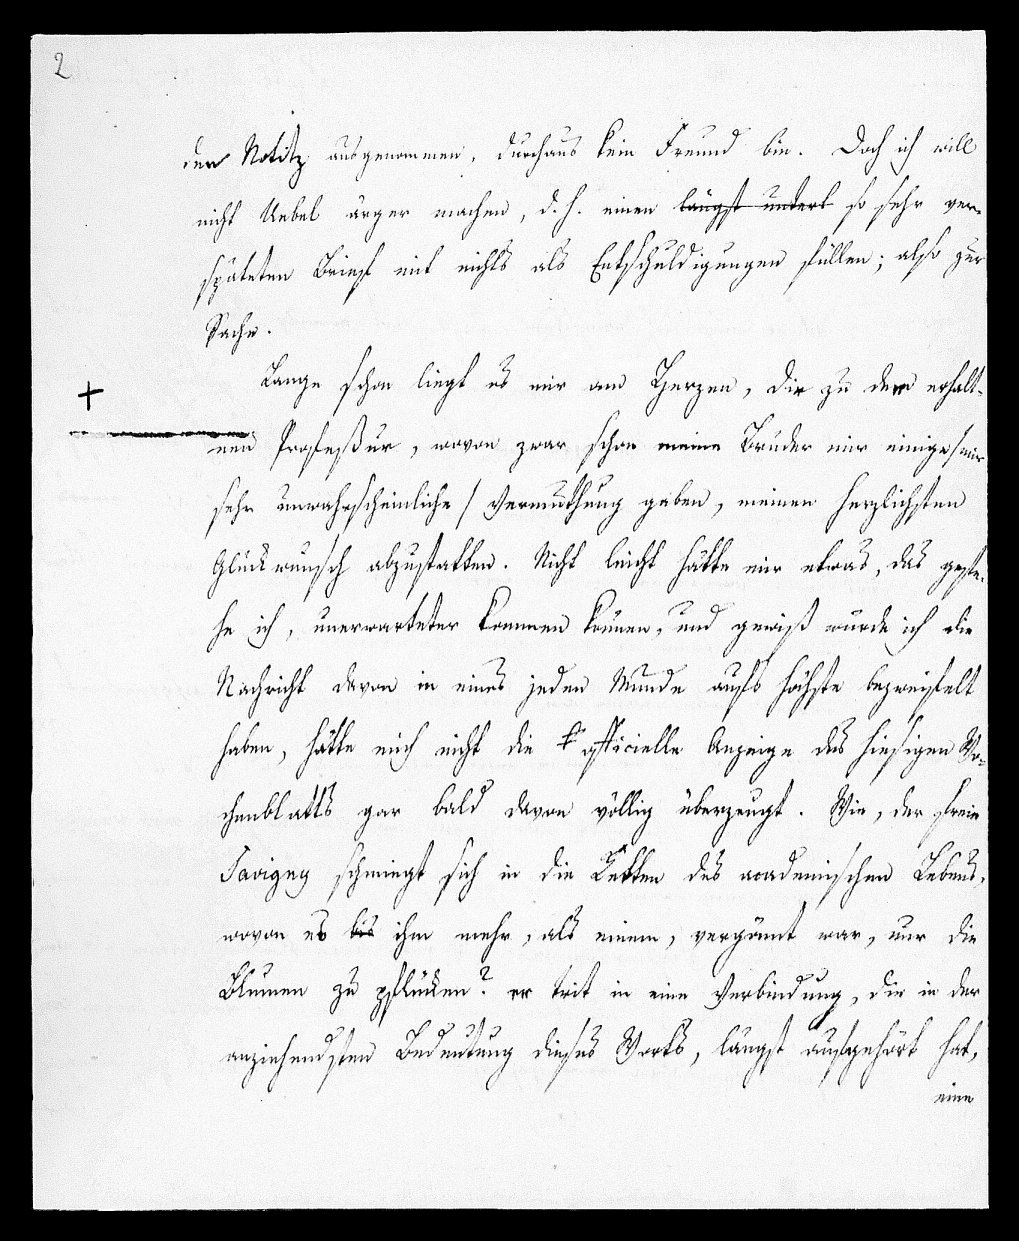 2
der Notitz ausgenommen, durchaus kein Freund bin. Doch ich will
nicht Uebel ärger machen, d. h. einen längst unterl so sehr ver-
späteten Brief mit nichts als Entschuldigungen füllen; also zur
Sache.
Lange schon liegt es mir am Herzen, Dir zu der erhalt-
nen Professur, wovon zwar schon meine Brüder mir einige / mir
sehr unwahrscheinliche / Vermuthung gaben, meinen herzlichsten
Glückwunsch abzustatten. Nicht leicht hätte mir etwas, das geste-
he ich, unerwarteter kommen können, und gewiß würde ich die
Nachricht davon in eines jeden Munde aufs höchste bezweifelt
haben, hätte mich nicht die officielle Anzeige des hiesigen Wo-
chenblatts gar bald davon völlig überzeugt. Wie, der freie
Savigny schmiegt sich in die Ketten des academischen Lebens,
wovon es bis ihm mehr, als einem, vergönnt war, nur die
Blumen zu pflücken? er trit in eine Verbindung, die in der
anziehendsten Bedeutung dieses Worts, längst aufgehört hat,
eine